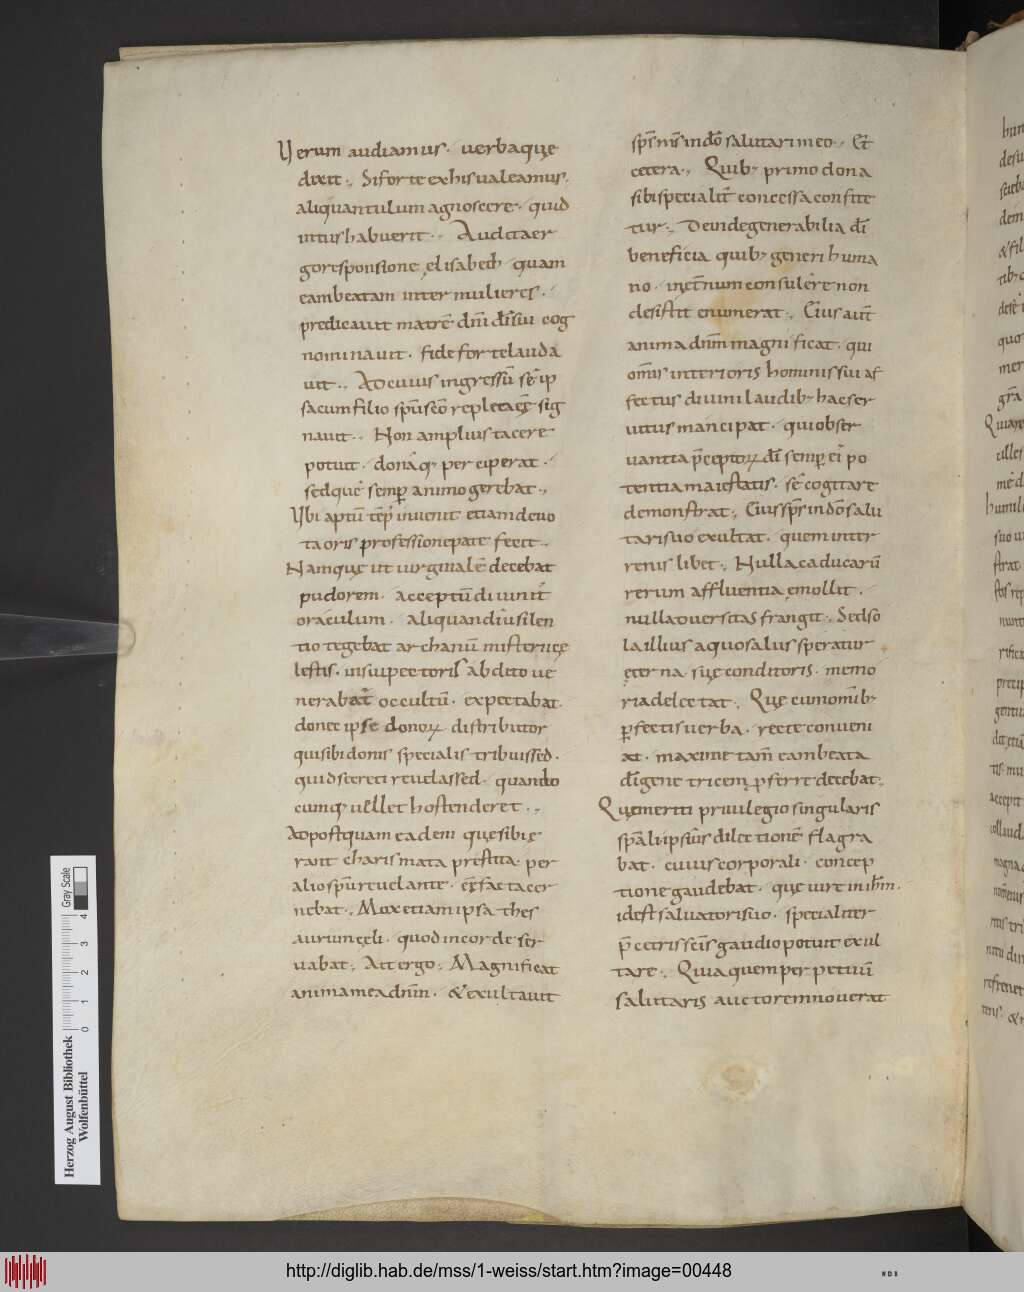 Verum audiamus · uerbaque
dixit ., Si forte ex his ualeamus ·
aliquantulum agnoscere · quid
intus habuerit ., Audita er
go responsione elisabeth quam
eam beatam inter mulieres ·
predicauit matrē dn̄i dī sui cog
nominauit · fide forte lauda
uit ., Ad cuius ingressū se ip
sa cum filio spū scō repleta ēē sig
nauit ., Non amplius tacere
potuit · dona q; perceperat ·
sed que semꝑ animo gerebat .,
Vbi aptū tēp inuenit etiam deuo
ta oris professione patefecit .,
Namque ut uirginalē decebat
pudorem · acceptū diuinit
oraculum · aliquandiu silen
tio tegebat archanū misterii ce
lestis · in sui pectoris abdito ue
nerabat occultū · expectabat ·
donec ipse donoꝝ distributor
qui sibi donis specialis tribuissed ·
quid secreti reuelassed · quando
cumq; uellet hostenderet .,
Ad postquam eadem que sibi e
rant charismata prestita · per
alio spū reuelante · ex facta cer
nebat ., Mox etiam ipsa thes
aurum celi · quod in corde ser
uabat ., Ait ergo ., Magnificat
anima mea dnm̄ · & exultauit
sp̄s m̄s in dō salutari meo ., Et
cetera ., Quib; primo dona
sibi specialit concessa confite
tur ., Deinde generabilia dī
beneficia quib; generi huma
no · in et̄num consulere non
desistit enumerat ., Eius aut̄
anima dnm̄ magnificat · qui
omīs interioris hominis sui af
fectus diuini laudib; hac ser
uitus mancipat · qui obser
uantia p̄ceptoꝝ dī semꝑ ei po
tentia maiestatis · se cogitare
demonstrat ., Eius sp̄s in dō salu
tari suo exultat · quem inter
renis libet ., Nulla caducarū
rerum affluentia emollit ·
nulla aduersitas frangit ., Sed so
la illius a quo salus speratur
eterna · sue conditoris · memo
ria delectat ., Que cum omib;
ꝑfectis uerba · recte conueni
at · maxime tam̄ eam beata
dī genetricem ꝓferre decebat ;
Que meriti priuilegio singularis
sp̄ali ipsius dilectionē flagra
bat · cuius corporali · concep
tione gaudebat · que iure in ihm̄ ·
id est saluatori suo · specialiter
p̄ cetris scīs gaudio potuit exul
tare ., Quia quem perpetuū
salutaris auctorem nouerat
Herzog August Bibliothek
Wolfenbüttel
0 1 2 3 4
Gray Scale
http://diglib.hab.de/mss/1-weiss/start.htm?image=00448